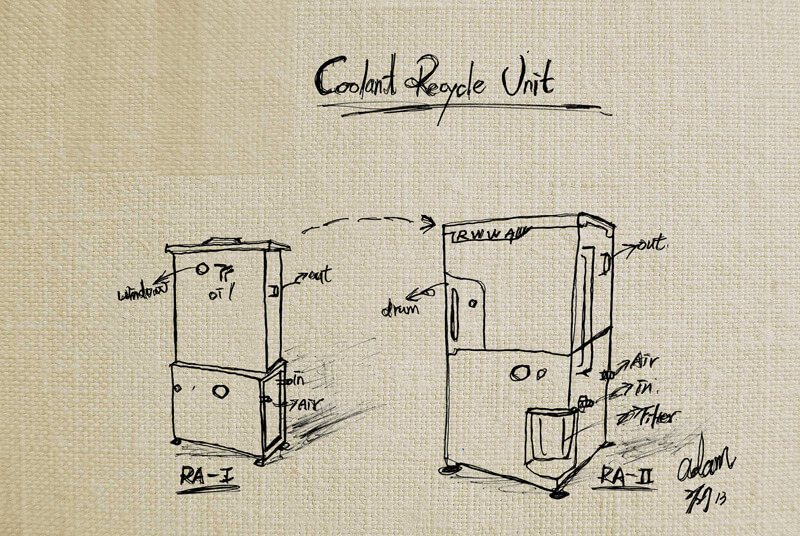 Coolant Recycle Unit
RWWA
window
oil
out
in
Air
RA-I
out
drum
Air
in.
Filter
RA-II
adam
13